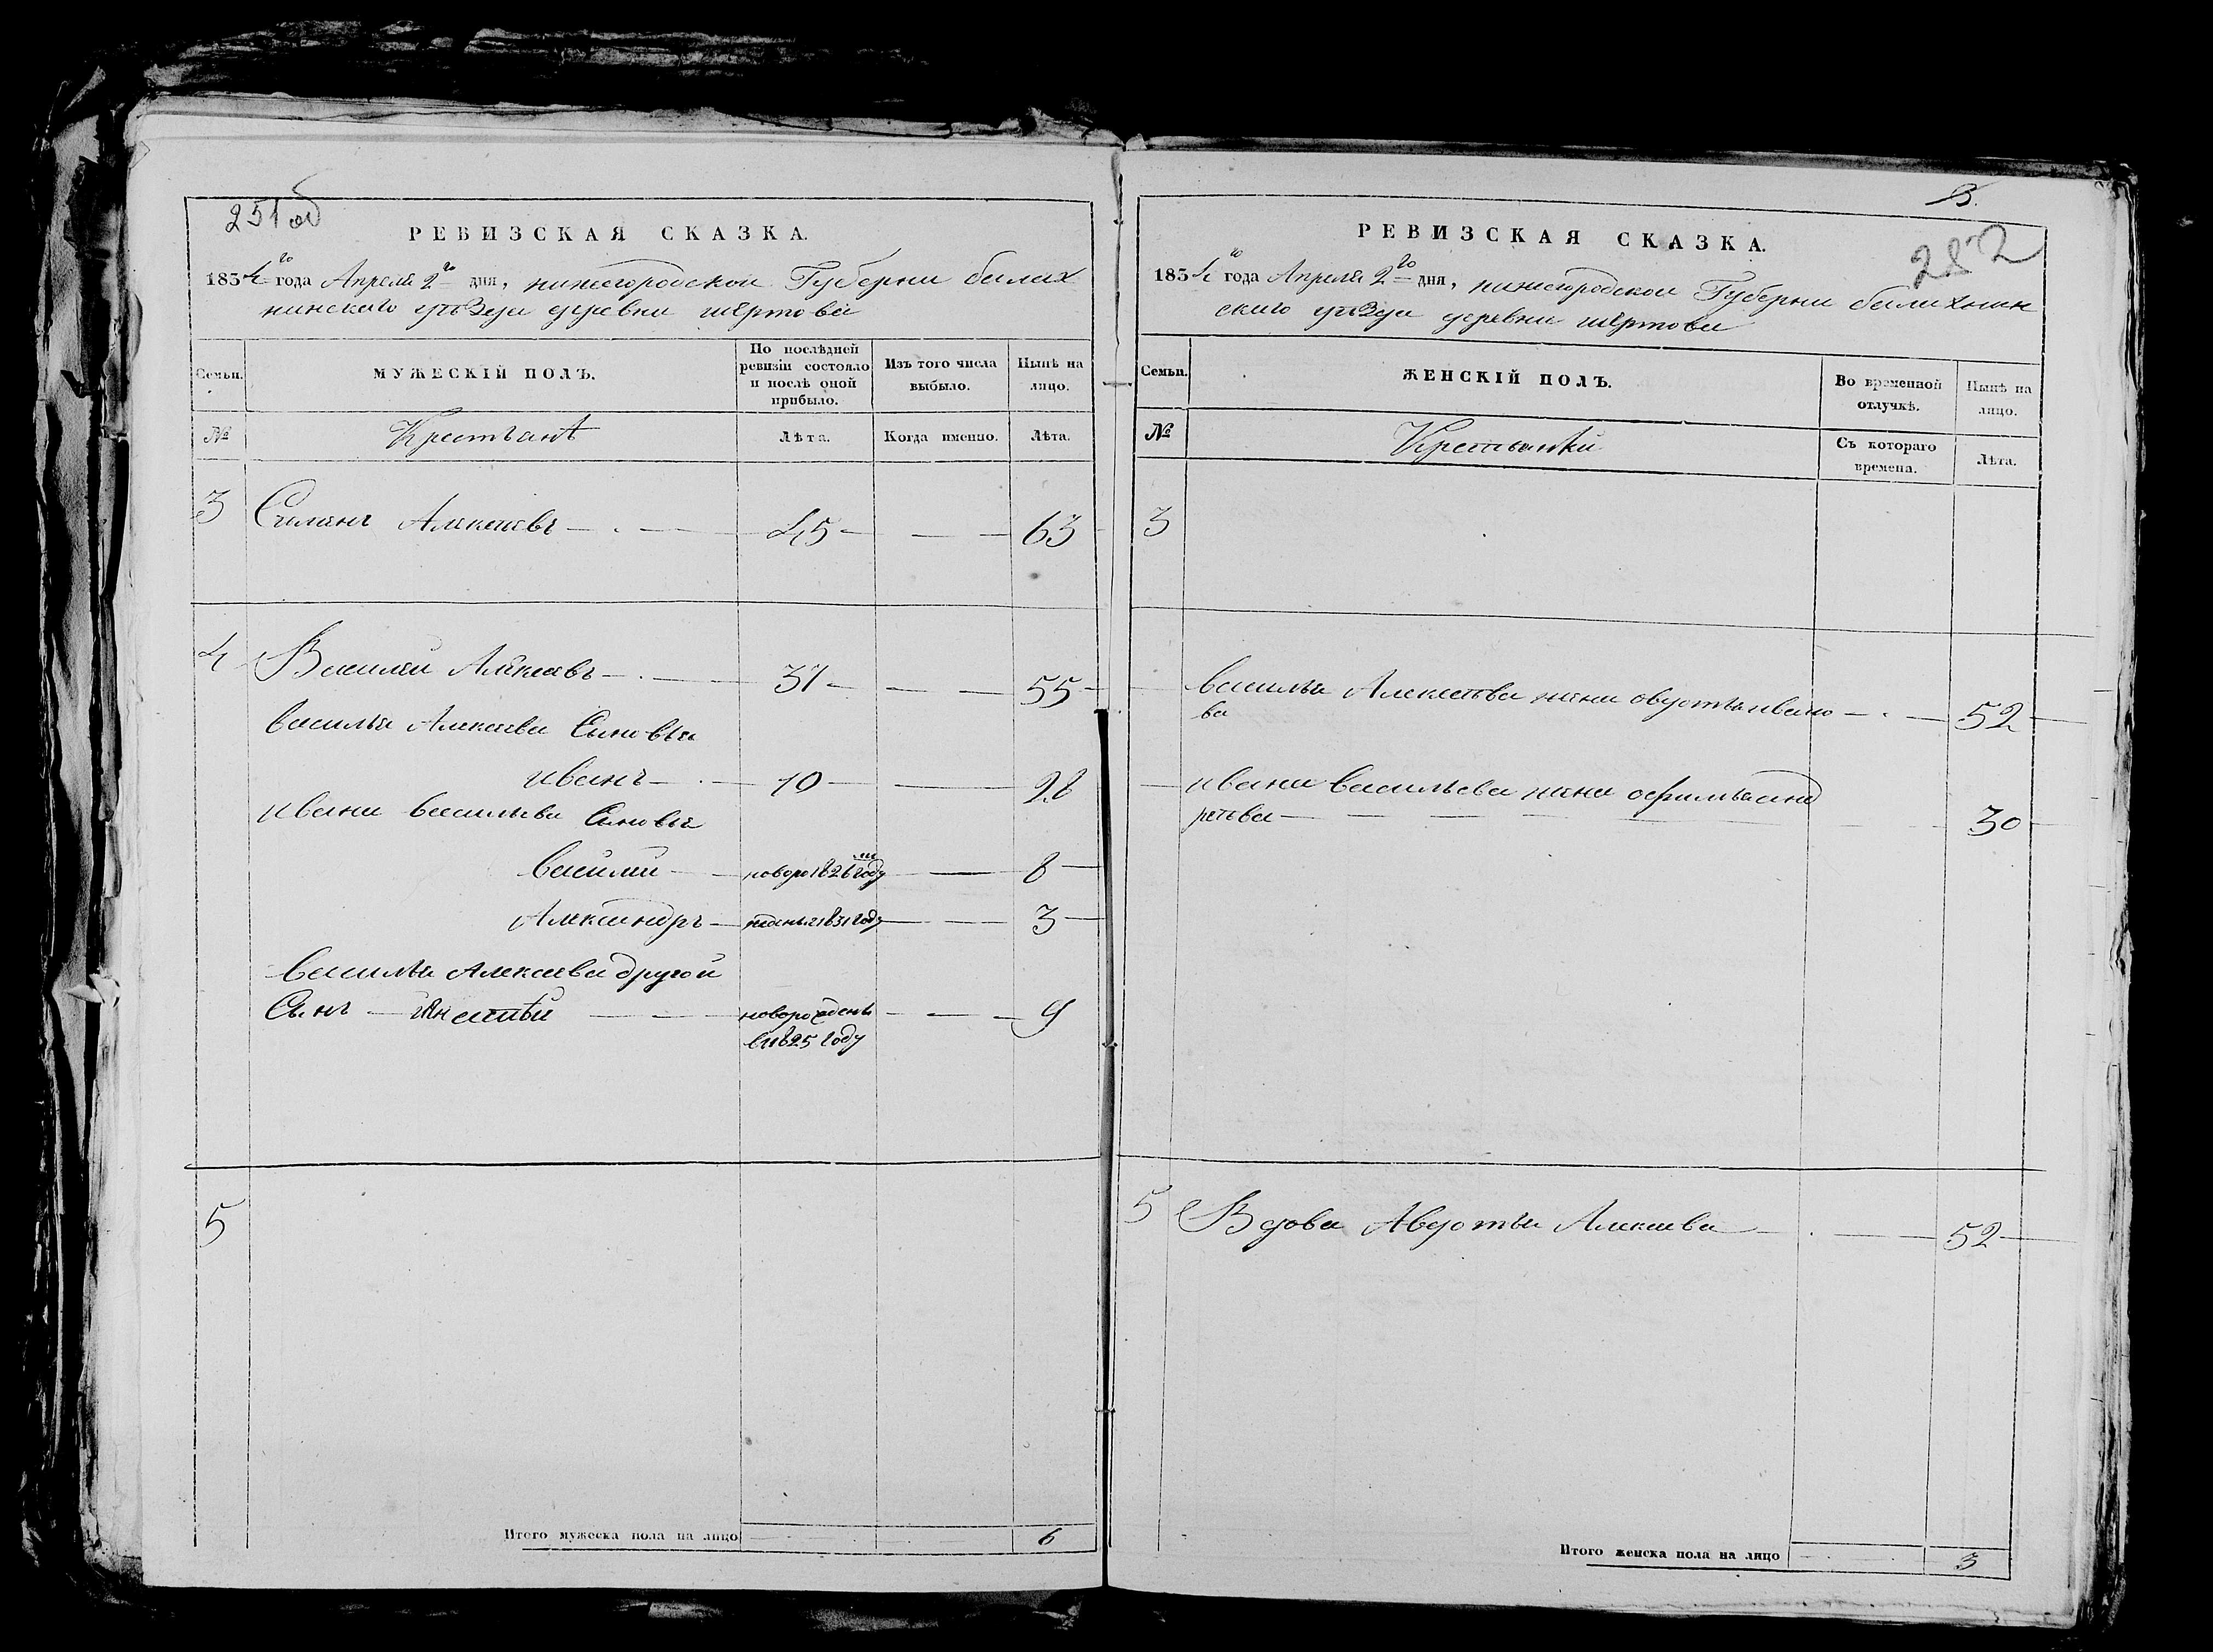 251 об
РЕВИЗСКАЯ СКАЗКА.
1834 го года Апреля 2 го дня, нижегородской Губерни балах
нинскаго уѣзда деревни шертова
Семьи.
МУЖЕСКІЙ ПОЛЪ.
По послѣдней ревизіи состояло и послѣ оной прибыло.
Изъ того числа выбыло.
Нынѣ на лицо.
№
Крестьянѣ
Лѣта.
Когда именно.
Лѣта.
3 Алексеевъ 45 63
4 Василей Алексеевъ 37 55
василья Алексеева Сыновья
иванъ 10 28
ивана васильева Сыновья
василий новоро 1826 году 8
Александръ 1831 году 3
василья Алексеева другой
Сынъ новорожденъ 9
в 1825 году
5
Итого мужеска пола на лицо 6
3.
252
РЕВИЗСКАЯ СКАЗКА.
1834 го года Апреля 2 го дня, нижегородской Губерни балахнин
скаго уѣзда деревни шертова
Семьи.
ЖЕНСКІЙ ПОЛЪ.
Во временной отлучкѣ.
Нынѣ на лицо.
№
Крестьянки
Съ котораго времена.
Лѣта.
3
василья Алексеева жена овдотья ивано 52
ва
ивана васильева жена офимья анд
реева 30
5 Вдова Авдотья Алексеева 52
Итого женска пола на лицо 3